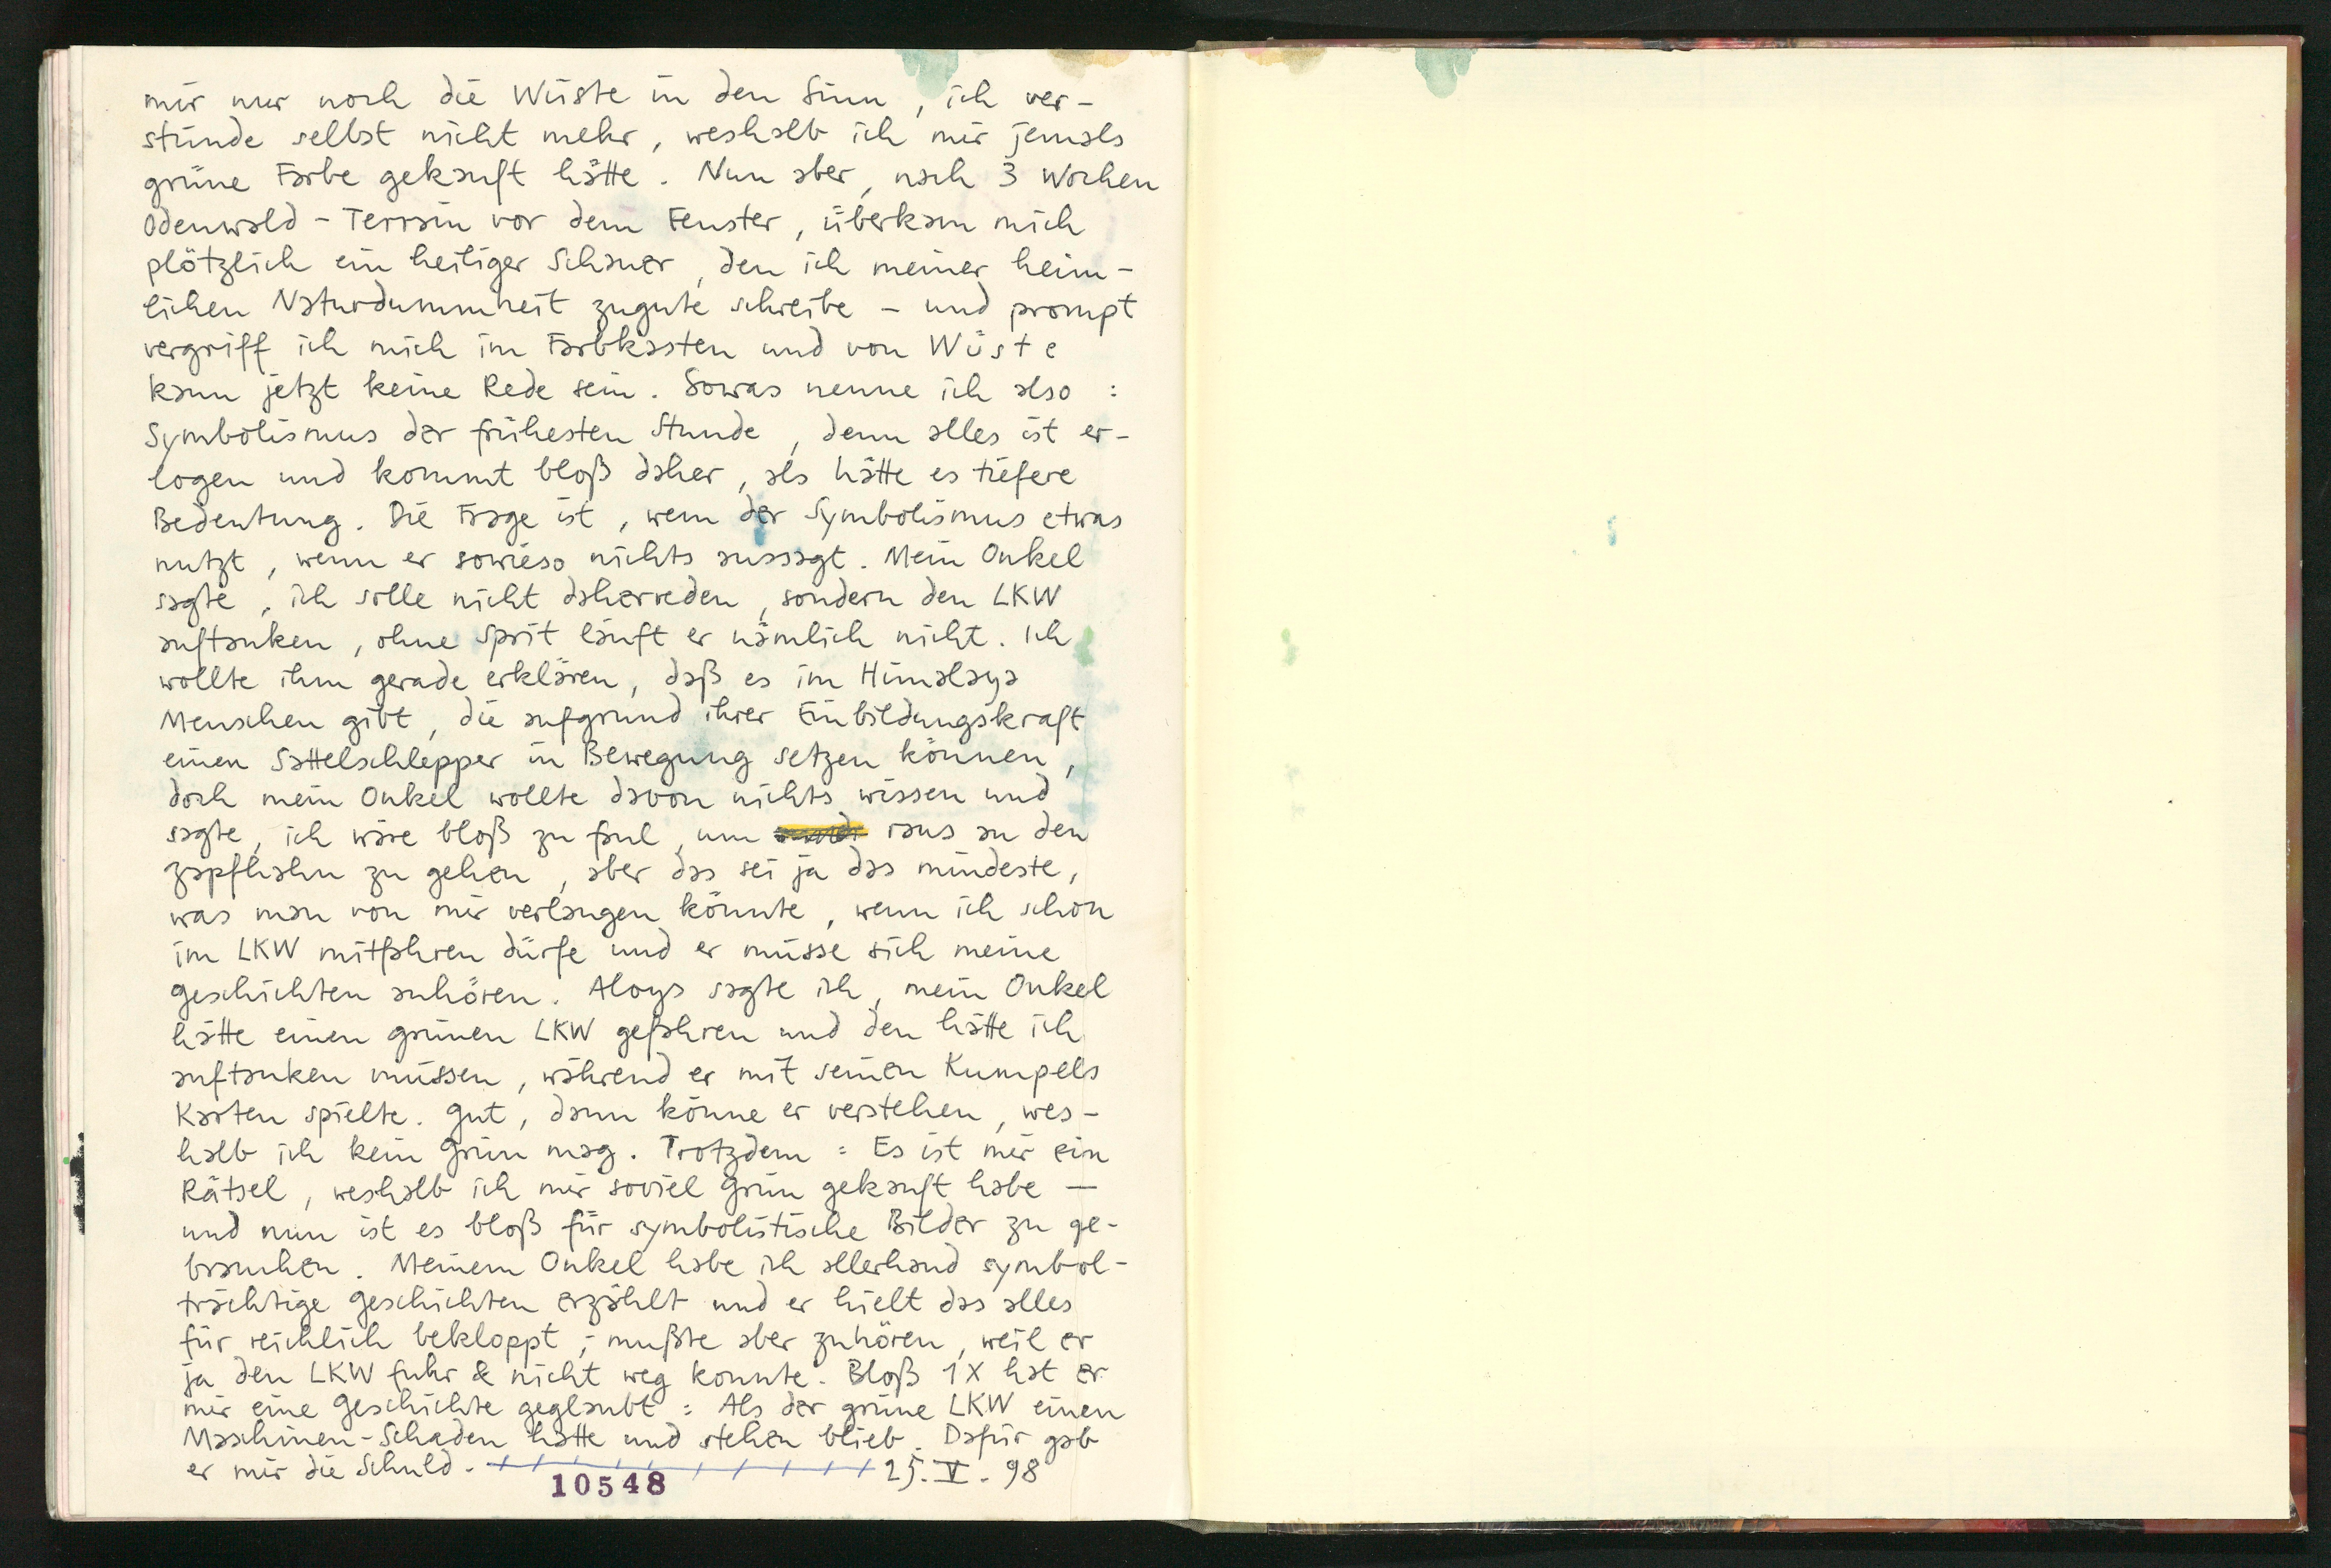 mir nur noch die Wüste in den Sinn, ich ver-
stünde selbst nicht mehr, weshalb ich mir jemals
grüne Farbe gekauft hätte. Nun aber, nach 3 Wochen
Odenwald-Terrain vor dem Fenster, überkam mich
plötzlich ein heiliger Schauer, den ich meiner heim-
lichen Naturdummheit zugute schreibe – und prompt
vergriff ich mich im Farbkasten und von Wüste
kann jetzt keine Rede sein. Sowas nenne ich also:
Symbolismus der frühesten Stunde, denn alles ist er-
logen und kommt bloß daher, als hätte es tiefere
Bedeutung. Die Frage ist, wem der Symbolismus etwas
nutzt, wenn er sowieso nichts aussagt. Mein Onkel
sagte, ich solle nicht daherreden, sondern den LKW
auftanken, ohne Sprit läuft er nämlich nicht. Ich
wollte ihm gerade erklären, daß es im Himalaya
Menschen gibt, die aufgrund ihrer Einbildungskraft
einen Sattelschlepper in Bewegung setzen können,
doch mein Onkel wollte davon nichts wissen und
sagte, ich wäre bloß zu faul, um raus an den
Zapfhahn zu gehen, aber das sei ja das mindeste,
was man von mir verlangen könnte, wenn ich schon
im LKW mitfahren dürfe und er müsse sich meine
Geschichten anhören. Aloys sagte ich, mein Onkel
hätte einen grünen LKW gefahren und den hätte ich
auftanken müssen, während er mit seinen Kumpels
Karten spielte. Gut, dann könne er verstehen, wes-
halb ich kein Grün mag. Trotzdem: Es ist mir ein
Rätsel, weshalb ich mir soviel Grün gekauft habe —
und nun ist es bloß für symbolistische Bilder zu ge-
brauchen. Meinem Onkel habe ich allerhand symbol-
trächtige Geschichten erzählt und er hielt das alles
für reichlich bekloppt; mußte aber zuhören, weil er
ja den LKW fuhr & nicht weg konnte. Bloß 1X hat er
mir eine Geschichte geglaubt: Als der grüne LKW einen
Maschinen-Schaden hatte und stehen blieb. Dafür gab
er mir die Schuld. 25. V. 98
10548